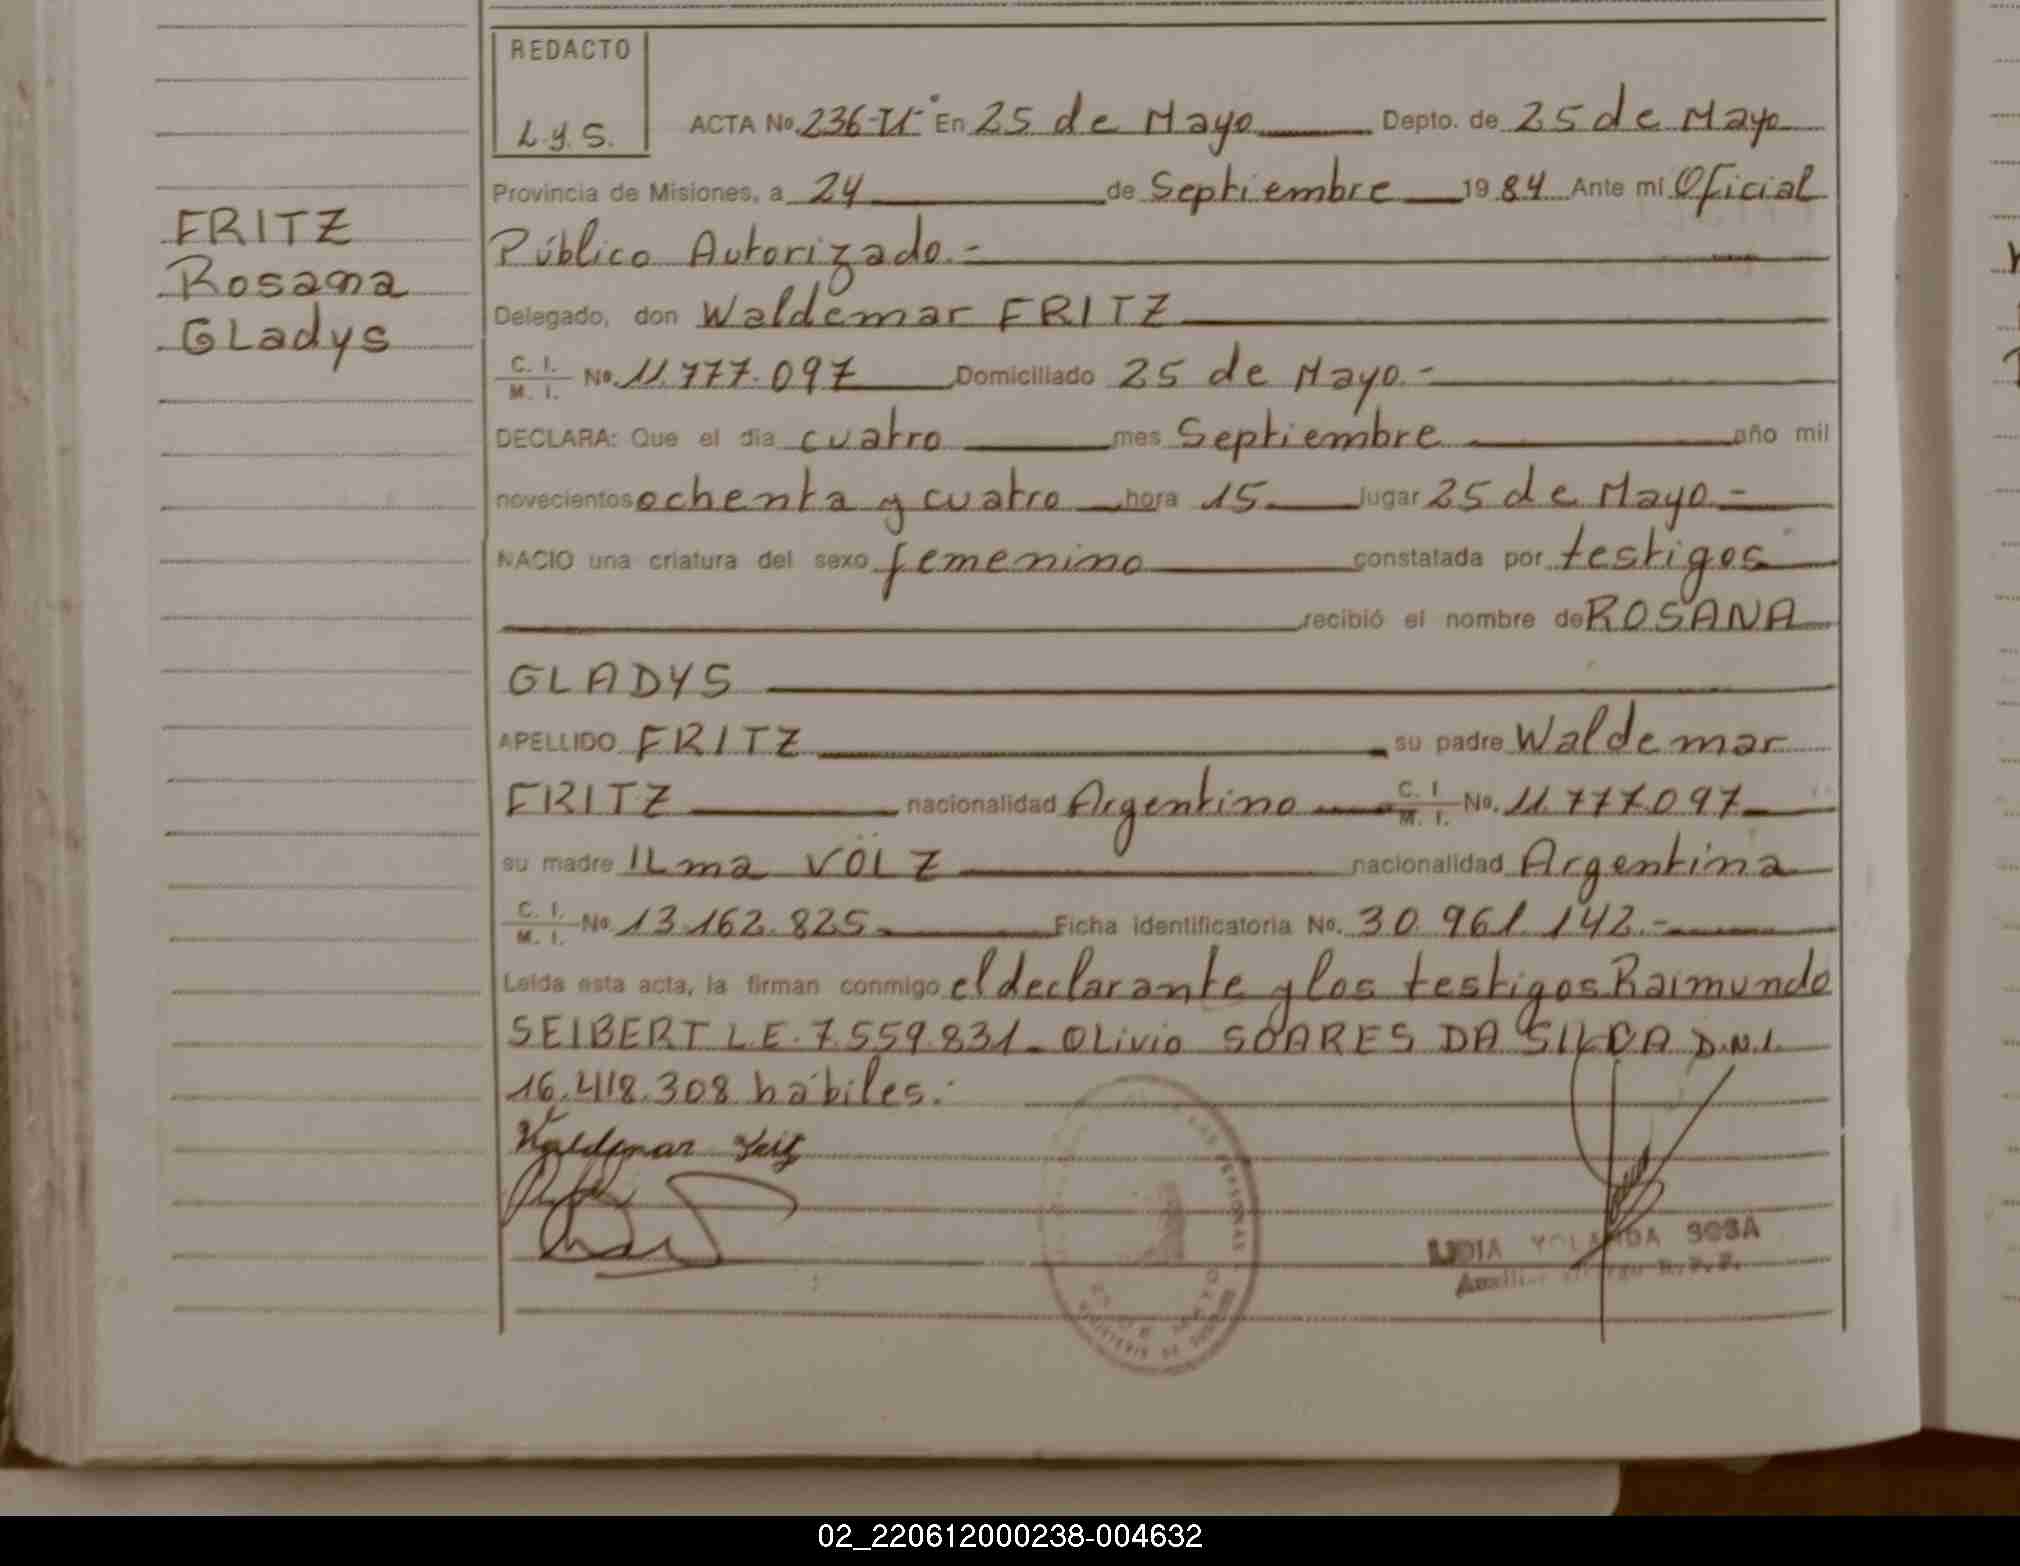 REDACTO
L.y.S.
ACTA No. 236-TI° En 25 de Mayo Depto. de 25 de Mayo
Provincia de Misiones, a 24 de Septiembre 1984 Ante mi Oficial
Público Autorizado.-
Delegado, don Waldemar FRITZ
C. I. M. I. No. 11.777.097 Domiciliado 25 de Mayo.-
DECLARA: Que el día cuatro mes Septiembre año mil
novecientos ochenta y cuatro hora 15 lugar 25 de Mayo.-
NACIO una criatura del sexo femenino constatada por testigos
recibió el nombre de ROSANA
GLADYS
APELLIDO FRITZ su padre Waldemar
FRITZ nacionalidad Argentino C. I. M. I. No. 11.777.097
su madre ILma VÖLZ nacionalidad Argentina
C. I. M. I. No. 13.162.825 Ficha identificatoria No. 30.961.142.-
Leída esta acta, la firman conmigo el declarante y los testigos Raimundo
SEIBERT L.E. 7.559.831. OLivio SOARES DA SILVA D.N.I.
16.418.308 hábiles.-
Waldemar Fritz
LIDIA YOLANDA SOSA
FRITZ
Rosana
GLadys
02_220612000238-004632